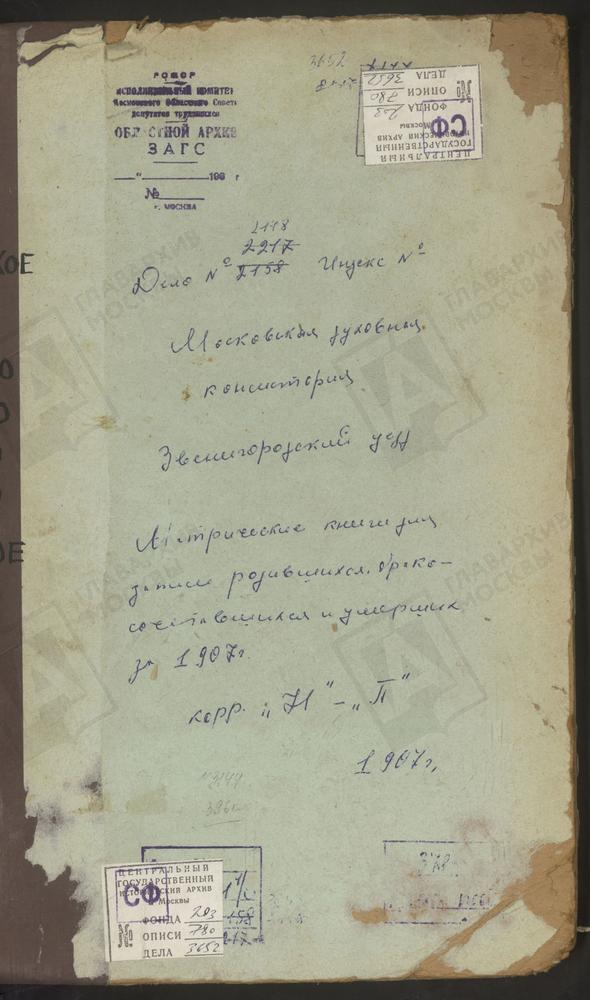 3652
РСФСР
ИСПОЛНИТЕЛЬНЫЙ КОМИТЕТ
Московского Областного Совета
депутатов трудящихся
ОБЛАСТНОЙ АРХИВ
ЗАГС
"
196 г
№
г. МОСКВА
ЦЕНТРАЛЬНЫЙ
ГОСУДАРСТВЕННЫЙ
ИСТОРИЧЕСКИЙ АРХИВ
Москвы
СФ
№ ФОНДА 203
ОПИСИ 780
ДЕЛА 3652
2118
2217
Дело № 2158 Индекс №
Московская духовная
консистория
Звенигородский уезд
Метрические книги для
записи родившихся, брако-
сочетавшихся и умерших
за 1907г.
корр. „Н" - „П"
1907г.
ЦЕНТРАЛЬНЫЙ
ГОСУДАРСТВЕННЫЙ
ИСТОРИЧЕСКИЙ АРХИВ
Москвы
СФ
№ ФОНДА 203
ОПИСИ 780
ДЕЛА 3652
ГЛАВАРХИВ
МОСКВЫ